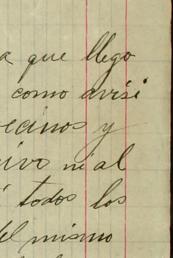 a que llego
como avisé
ecinos y
ivo ni al
todos los
del mismo